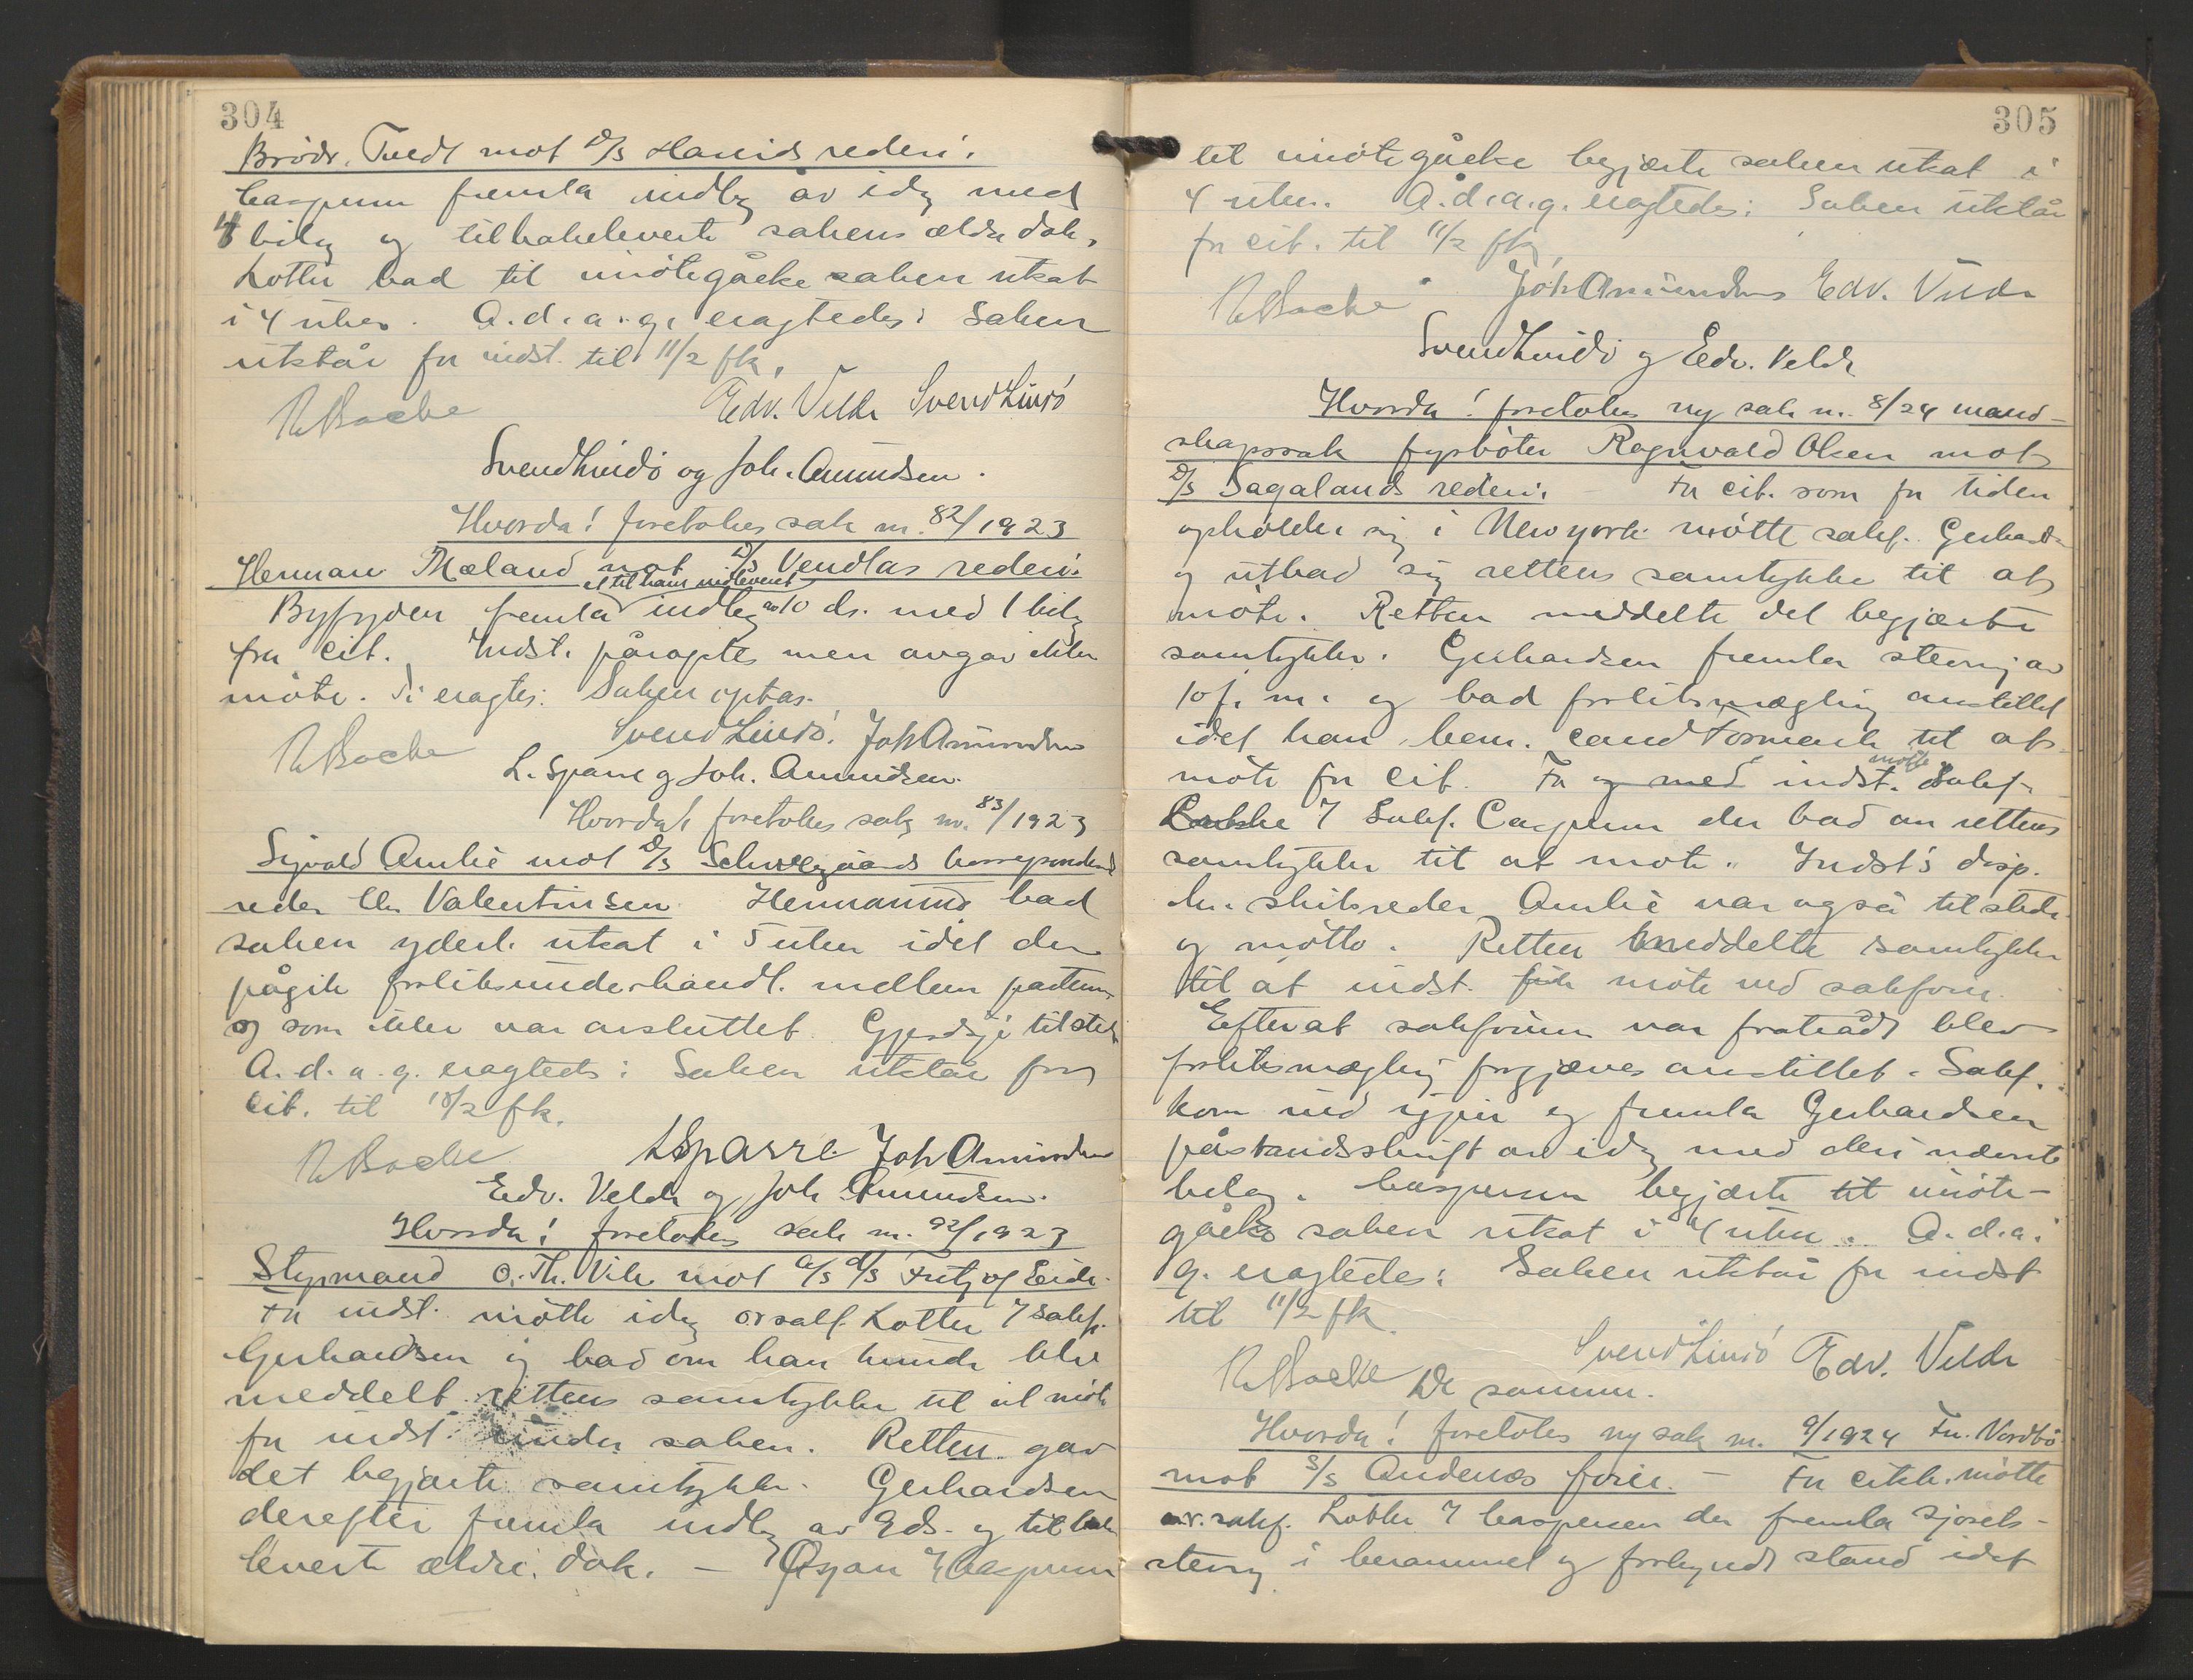 304
Brödr. Tvedt mot D/S Havids rederi.
Caspersen fremla indlæg av idag med
4 bilag og tilbakeleverte sakens ældre dok.
Lotter bad til imötegåelse saken utsat
i 4 uker. A.d.a.g. eragtedes: Saken
utstår for indst. til 11/2 fk.
Edv. Velde Svend Lindö
Svend Lindö og Joh. Amundsen.
Hvorda! foretokes sak nr. 82/1923
Herman Mæland mot D/S Vendlas rederi.
et til ham indlevert
Byfogden fremla indlæg av 10 ds. med 1 bilag
fra cit. Indst. påroptes men avgav ikke
möte. Ti eragtes: Saken optas.
Svend Lindö. Joh Amundsen
L. Sparre og Joh. Amundsen.
Hvorda! foretokes sak nr. 83/1923
Sigvald Amlie mot D/S Schweigaards korresponderende
reder Chr Valentinsen. Hermansen bad
saken yderl. utsat i 5 uker idet der
pågik forliksunderhandl. mellem partene
og som ikke var avsluttet. tilsted
A.d.a.g. eragtedes: Saken utstår for
cit. til 18/2 fk.
L Sparre. Joh Amundsen
Edv. Velde og Joh Amundsen.
Hvorda! foretokes sak nr. 92/1923
Styrmand O. Th. Vik mot A/S D/S Fritjof Eide.
For indst. mötte idag orsakf. Lotter v/ sakf.
Gerhardsen og bad om han kunde blive
meddelt rettens samtykke til at möte
for indst. under saken. Retten gav
det begjærte samtykke. Gerhardsen
derefter fremla indlæg av Gds. og tilbake
leverte ældre dok. — v/ Caspersen
305
til imötegåelse begjærte saken utsat i
4 uker. A.d.a.g. eragtedes: Saken utstår
for cit. til 11/2 fk.
Joh Amundsen Edv. Velde
Svend Lindö og Edv. Velde
Hvorda! foretokes ny sak nr. 8/24 mand-
skapssak fyrböter Ragnvald Olsen mot
D/S Sagalands rederi. – For cit. som for tiden
opholder sig i New york mötte sakf. Gerhardsen
og utbad sig rettens samtykke til at
möte. Retten meddelte det begjærte
samtykke. Gerhardsen fremla stevning av
10 f. m. og bad forliksmægling anstillet
idet han bem. cand Formark til at
möte for cit. For og med indst. mötte Sakf.
Lotter v/ Sakf. Caspersen der bad om rettens
samtykke til at möte. Indst's disp.
hr. skibsreder Amlie var også tilstede
og mötte. Retten meddelte samtykke
til at indst. fik möte ved sakförer.
Efterat sakförerne var fratrådt blev
forliksmægling forgjæves anstillet. Sakf.
kom ind igjen og fremla Gerhardsen
påstandsskrift av idag med deri nævnte
bilag. Caspersen begjærte til imöte-
gåelse saken utsat i 4 uker. A.d.a.
g. eragtedes: Saken utstår for indst
til 11/2 fk.
Svend Lindö Edv. Velde
De samme.
Hvorda! foretokes ny sak nr. 9/1924 Fr. Nordbö
mot S/S Andenæs förer. — For citk. mötte
o.r. sakf. Lotter v/ Caspersen der fremla sjörets-
stevning i berammet og forkyndt stand idet